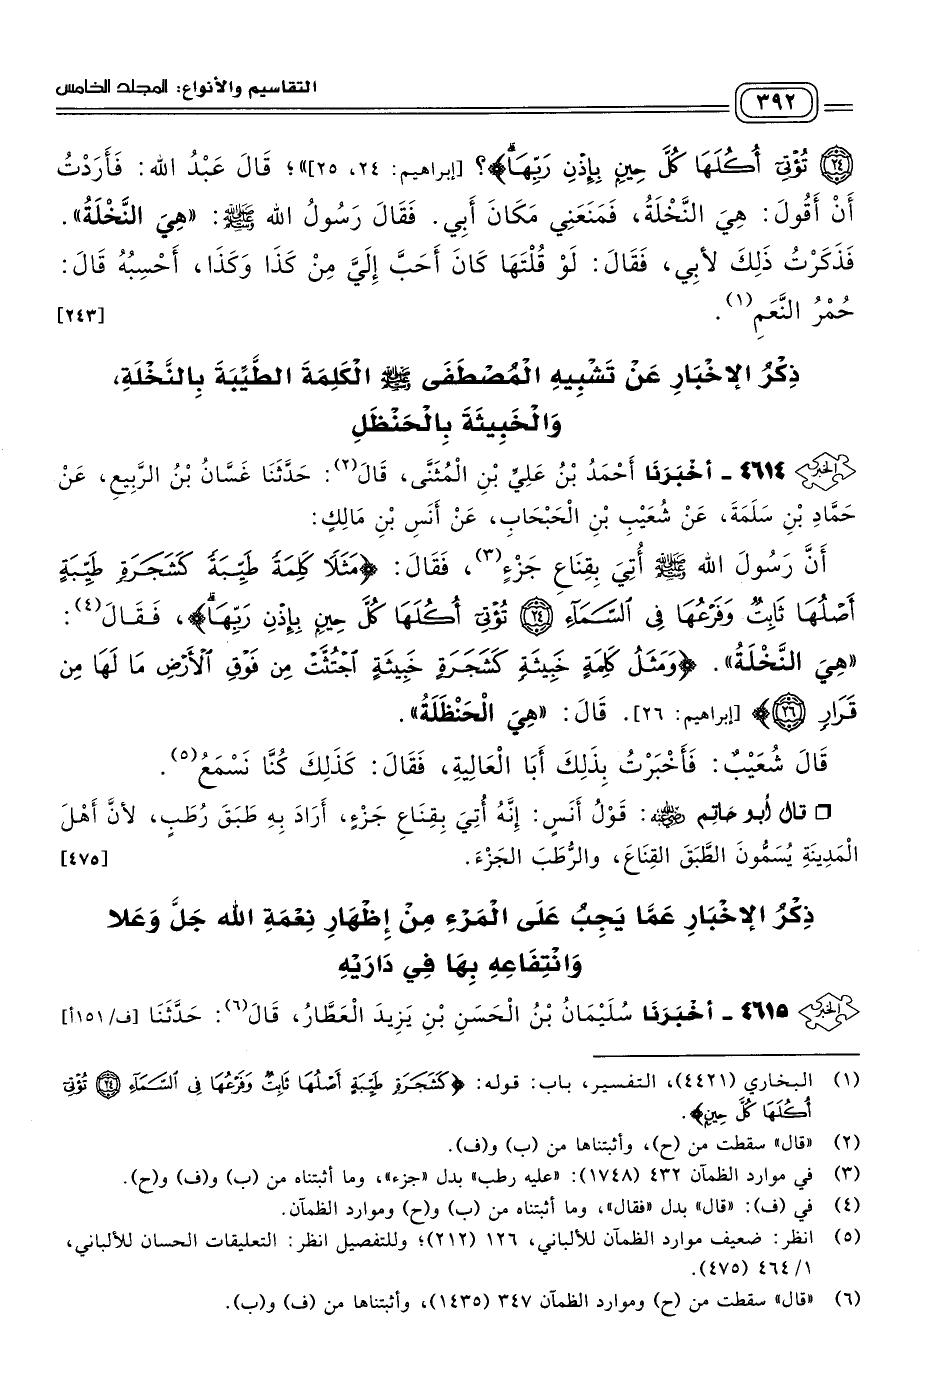 ٣٩٢
التقاسيم والأنواع: المجلد الخامس
(٢٤) تُؤْتِىٓ أُكُلَهَا كُلَّ حِينٍۭ بِإِذْنِ رَبِّهَاۗ﴾؟ [إبراهيم: ٢٤، ٢٥]»؛ قَالَ عَبْدُ الله: فَأَرَدْتُ
أَنْ أَقُولَ: هِيَ النَّخْلَةُ، فَمَنَعَنِي مَكَانَ أَبِي. فَقَالَ رَسُولُ الله ﷺ: «هِيَ النَّخْلَةُ».
فَذَكَرْتُ ذَلِكَ لأَبِي، فَقَالَ: لَوْ قُلْتَهَا كَانَ أَحَبَّ إِلَيَّ مِنْ كَذَا وَكَذَا، أَحْسِبُهُ قَالَ:
حُمْرُ النَّعَمِ(١). [٢٤٣]
ذِكْرُ الإِخْبَارِ عَنْ تَشْبِيهِ الْمُصْطَفَى ﷺ الْكَلِمَةَ الطَّيِّبَةَ بِالنَّخْلَةِ،
وَالْخَبِيثَةَ بِالْحَنْظَلِ
٤٦١٤ ـ أَخْبَرَنَا أَحْمَدُ بْنُ عَلِيِّ بْنِ الْمُثَنَّى، قَالَ(٢): حَدَّثَنَا غَسَّانُ بْنُ الرَّبِيعِ، عَنْ
حَمَّادِ بْنِ سَلَمَةَ، عَنْ شُعَيْبِ بْنِ الْحَبْحَابِ، عَنْ أَنَسِ بْنِ مَالِكٍ:
أَنَّ رَسُولَ الله ﷺ أُتِيَ بِقِنَاعِ جَزْءٍ(٣)، فَقَالَ: ﴿مَثَلًا كَلِمَةً طَيِّبَةً كَشَجَرَةٍ طَيِّبَةٍ
أَصْلُهَا ثَابِتٌ وَفَرْعُهَا فِى ٱلسَّمَآءِ (٢٤) تُؤْتِىٓ أُكُلَهَا كُلَّ حِينٍۭ بِإِذْنِ رَبِّهَاۗ﴾، فَقَالَ(٤):
«هِيَ النَّخْلَةُ». ﴿وَمَثَلُ كَلِمَةٍ خَبِيثَةٍ كَشَجَرَةٍ خَبِيثَةٍ ٱجْتُثَّتْ مِن فَوْقِ ٱلْأَرْضِ مَا لَهَا مِن
قَرَارٍ (٢٦)﴾ [إبراهيم: ٢٦]. قَالَ: «هِيَ الْحَنْظَلَةُ».
قَالَ شُعَيْبٌ: فَأَخْبَرْتُ بِذَلِكَ أَبَا الْعَالِيةِ، فَقَالَ: كَذَلِكَ كُنَّا نَسْمَعُ(٥).
❑ قال أبو حاتم ﵁: قَوْلُ أَنَسٍ: إِنَّهُ أُتِيَ بِقِنَاعِ جَزْءٍ، أَرَادَ بِهِ طَبَقَ رُطَبٍ، لأَنَّ أَهْلَ
الْمَدِينَةِ يُسَمُّونَ الطَّبَقَ القِنَاعَ، والرُّطَبَ الجَزْءَ. [٤٧٥]
ذِكْرُ الإِخْبَارِ عَمَّا يَجِبُ عَلَى الْمَرْءِ مِنْ إِظْهَارِ نِعْمَةِ الله جَلَّ وَعَلا
وَانْتِفَاعِهِ بِهَا فِي دَارَيْهِ
٤٦١٥ ـ أَخْبَرَنَا سُلَيْمَانُ بْنُ الْحَسَنِ بْنِ يَزِيدَ الْعَطَّارُ، قَالَ(٦): حَدَّثَنَا [ف/١٥١أ]
(١) البخاري (٤٤٢١)، التفسير، باب: قوله: ﴿كَشَجَرَةٍ طَيِّبَةٍ أَصْلُهَا ثَابِتٌ وَفَرْعُهَا فِى ٱلسَّمَآءِ (٢٤) تُؤْتِىٓ
أُكُلَهَا كُلَّ حِينٍ﴾.
(٢) «قال» سقطت من (ح)، وأثبتناها من (ب) و(ف).
(٣) في موارد الظمآن ٤٣٢ (١٧٤٨): «عليه رطب» بدل «جزء»، وما أثبتناه من (ب) و(ف) و(ح).
(٤) في (ف): «قال» بدل «فقال»، وما أثبتناه من (ب) و(ح) وموارد الظمآن.
(٥) انظر: ضعيف موارد الظمآن للألباني، ١٢٦ (٢١٢)؛ وللتفصيل انظر: التعليقات الحسان للألباني،
١/ ٤٦٤ (٤٧٥).
(٦) «قال» سقطت من (ح) وموارد الظمآن ٣٤٧ (١٤٣٥)، وأثبتناها من (ف) و(ب).